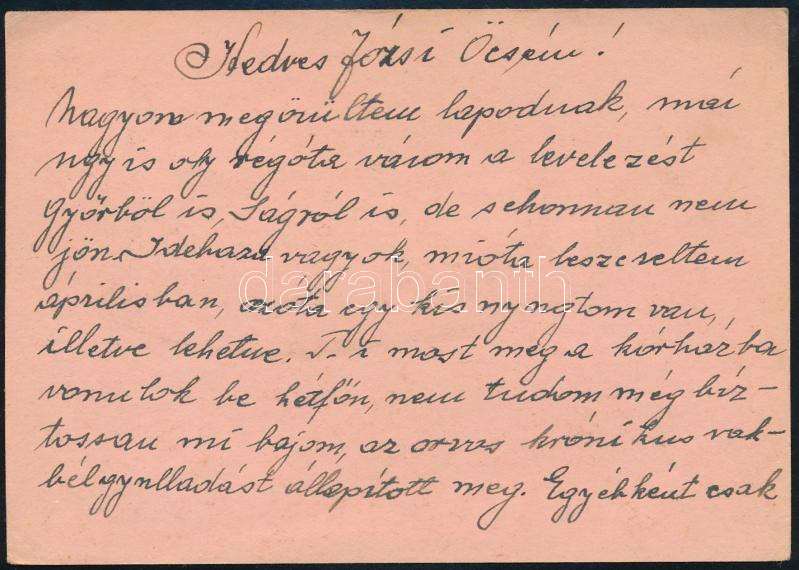 Kedves Józsi Öcsém!
Nagyon megörültem lapodnak, mái
úgy is oly régóta várom a levelezést
Győrből is, Ságról is, de sehonnan nem
jön. Idehaza vagyok, mióta leszereltem
áprilisban, azóta egy kis nyugtom van,
illetve lehetne. T. i most meg a kórházba
vonulok be hétfőn, nem tudom még biz-
tossan mi bajom, az orvos krónikus vak-
bélgyulladást állapitott meg. Egyébként csak
darabanth